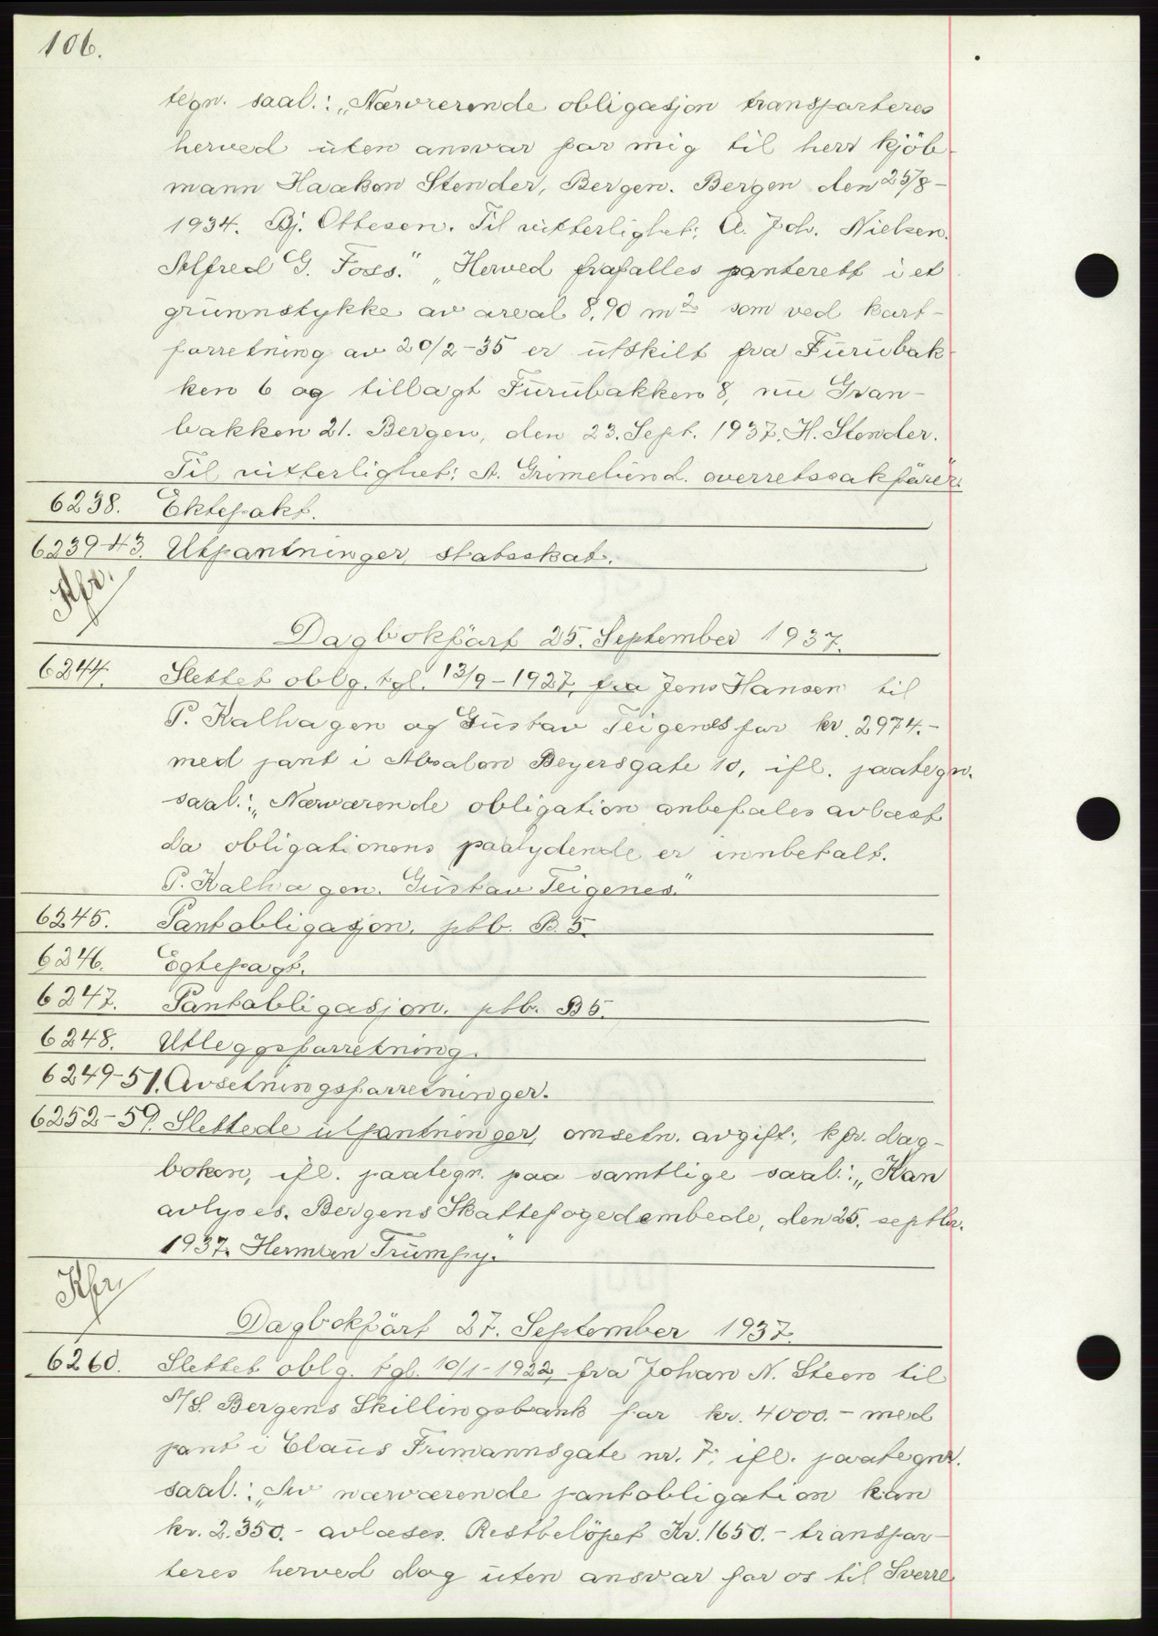 106.
tegn. saal.: „Nærværende obligasjon transporteres
herved uten ansvar for mig til herr kjöb-
mann Haakon Stender, Bergen. Bergen den 25/8-
1934. Bj. Ottesen. Til vitterlighet: A. Joh. Nielsen.
Alfred G. Foss." „Herved frafalles panterett i et
grunnstykke av areal 8,90 m² som ved kart-
forretning av 20/2-35 er utskilt fra Furubak-
ken 6 og tillagt Furubakken 8, nu Gran-
bakken 21. Bergen, den 23. Sept. 1937. H. Stender.
Til vitterlighet: A. Grimelund. overretssakförer."
6238. Ektepakt.
6239-43. Utpantninger, statsskat.
Kfr.
Dagbokfört 25. September 1937.
6244. Slettet oblg. tgl. 13/9-1927, fra Jens Hansen til
P. Kalhagen og Gustav Teigenes for kr. 2974.-
med pant i Absalon Beyersgate 10, ifl. paategn.
saal.: „Nærværende obligation anbefales avlæst
da obligationens paalydende er innbetalt.
P. Kalhagen. Gustav Teigenes."
6245. Pantobligasjon. ptb. B. 5.
6246. Egtepagt.
6247. Pantobligasjon. ptb. B 5.
6248. Utleggsforretning.
6249-51. Avsetningsforretninger.
6252-59. Slettede utpantninger, omsetn. avgift:, kfr. dag-
boken, ifl. paategn. paa samtlige saal.: „Kan
avlyses. Bergens Skattefogedembede, den 25. septbr.
1937. Herman Trumpy."
Kfr.
Dagbokfört 27. September 1937.
6260. Slettet oblg. tgl. 10/1-1922, fra Johan N. Steen til
A/S. Bergens Skillingsbank for kr. 4000.- med
pant i Claus Frimannsgate nr. 7, ifl. paategnr.
saal.: „Av nærværende pantobligation kan
kr. 2.350.- avlæses. Restbelöpet Kr. 1650.- transpor-
teres herved dog uten ansvar for os til Sverre